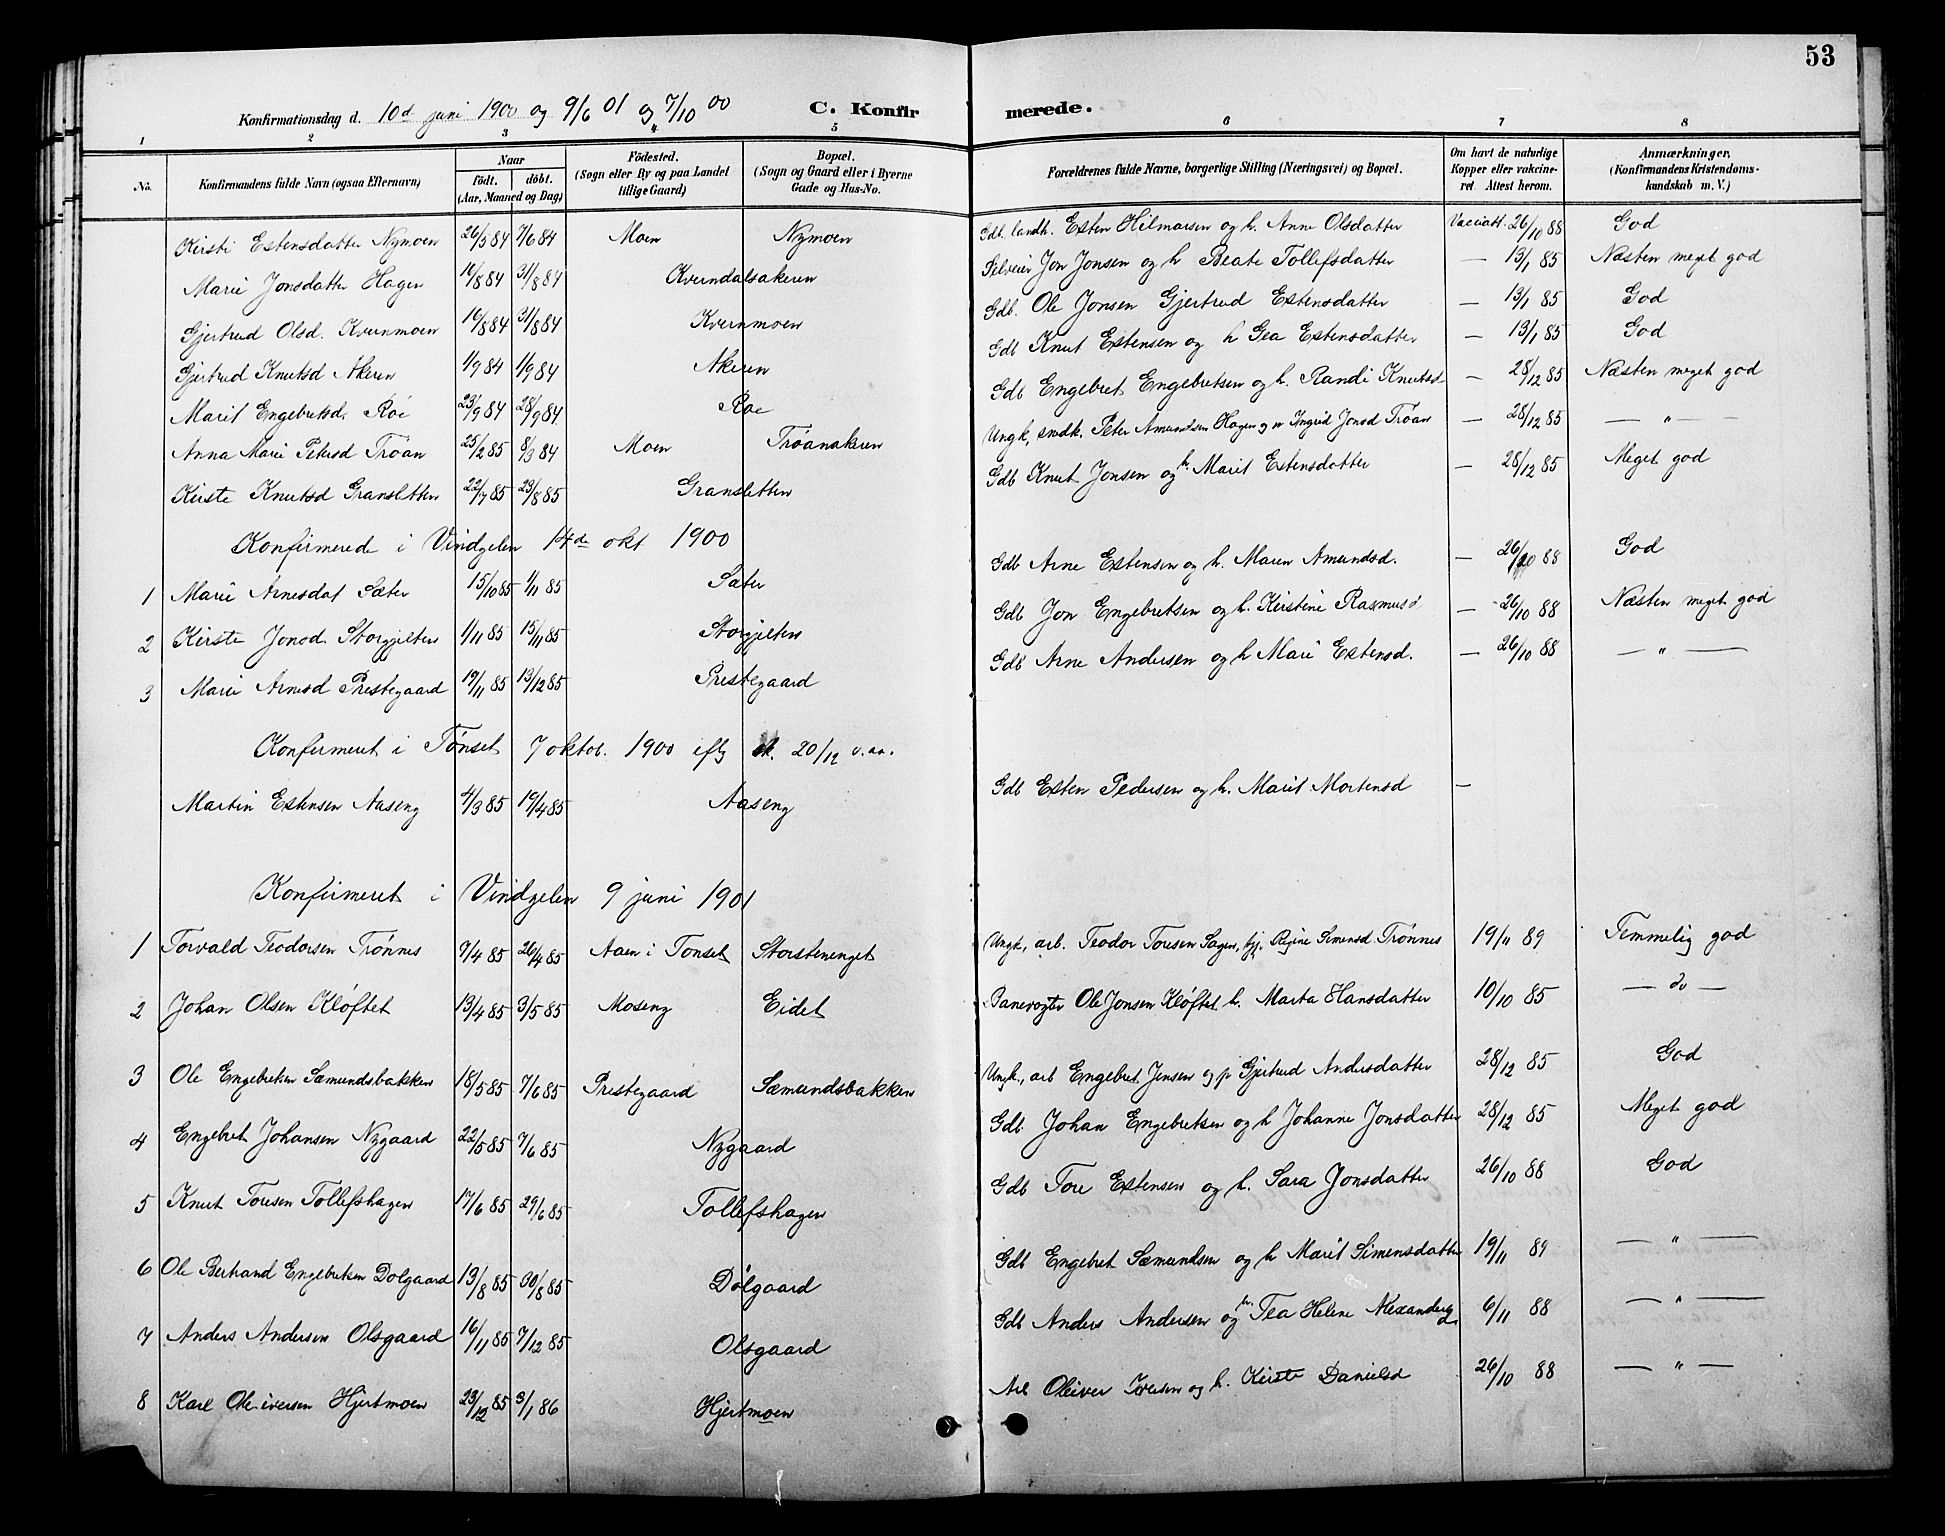 53
Konfirmationsdag d. 10d juni 1900 og 9/6 01 og 7/10 00 C. Konfirmerede.
1 2 3 4 5 6 7 8
No. Konfirmandens fulde Navn (ogsaa Efternavn) Naar födt. döbt. (Aar, Maaned og Dag) Födested. (Sogn eller By og paa Landet tillige Gaard) Bopæl. (Sogn og Gaard eller i Byerne Gade og Hus-No. Forældrenes fulde Navne, borgerlige Stilling (Næringsvei) og Bopæl. Om havt de naturlige Kopper eller vakcineret Attest herom. Anmærkninger. (Konfirmandens Kristendomskundskab m. V.)
Kirsti Estensdatter Nymoen 26/5 84 7/6 84 Moen Nymoen Gdb. landh. Esten Hilmarsen og h. Anne Olsdatter Vacciatt. 26/10 88 God
Marie Jonsdatter Hagen 16/8 84 31/8 84 Kverndalsakeren Selveier Jon Jonsen og h Beate Tollefsdatter — 13/1 85 Næsten meget god
Gjertrud Olsd. Kvernmoen 19/8 84 31/8 84 Kvernmoen Gdb. Ole Jonsen Gjertrud Estensdatter — 13/1 85 God
Gjertrud Knutsd Akeren 1/9 84 1/9 84 Akeren Gdb Knut Estensen og h Gea Estensdatter — 13/1 85 God
Marit Engebretsd. Röe 23/9 84 28/9 84 Röe Gdb Engebret Engebretsen og h. Randi Knutsd — 28/12 85 Næsten meget god
Anna Marie Petersd Tröan 25/2 85 8/3 84 Moen Tröanakeren Ungk, smdk. Peter Amundsen Hagen og p Ingrid Jonsd Tröan — 28/12 85 — " —
Kirste Knutsd Gransletten 22/7 85 23/8 85 Gransletten Gdb Knut Jonsen og h Marit Estensdatter — 28/12 85 Meget god
Konfirmerede i Vindgelen 14de okt 1900
1 Marie Arnesdat Sæter 15/10 85 1/11 85 Sæter Gdb Arne Estensen og h. Maren Amundsd. — 26/10 88 God
2 Kirste Jonsd. Storgjelten 1/11 85 15/11 85 Storgjelten Gdb Jon Engebretsen og h. Kirstine Rasmusd — 26/10 88 Næsten meget god
3 Marie Arnesd Prestegaard 19/11 85 13/12 85 Prestegaard Gdb Arne Andersen og h Mari Estensd. — 26/10 88 — " —
Konfirmeret i Tønset 7 oktob. 1900 eftg sk. 20/12 v. aa.
Martin Estensen Aaseng 4/3 85 19/4 85 Aaseng Gdb Esten Pedersen og h. Marit Mortensd —
Konfirmeret i Vindgelen 9 juni 1901
1 Torvald Teodorsen Trønnes 9/4 85 26/4 85 Aaen i Tonset Storsteneget Ungk, arb. Teodor Toresen Sagen, pg. Regine Simensd Trønnes 19/11 89 Temmelig god
2 Johan Olsen Kløftet 13/4 85 3/5 85 Moseng Eidet Banevogter Ole Jonsen Kløftet h. Marta Hansdatter 10/10 85 — do —
3 Ole Engebretsen Sæmundsbakken 18/5 85 7/6 85 Prestegaard Sæmundsbakken Ungk., arb Engebret Jensen og p Gjertrud Andersdatter 28/12 85 God
4 Engebret Johansen Nygaard 22/5 85 7/6 85 Nygaard Gdb Johan Engebretsen og h Johanne Jonsdatter 28/12 85 Meget god
5 Knut Toresen Tollefshagen 17/6 85 29/6 85 Tollefshagen Gdb Tore Estensen og h. Sara Jonsdatter 26/10 88 God
6 Ole Bertrand Engebretsen Dölgaard 13/8 85 30/8 85 Dölgaard Gdb Engebret Sæmundsen og h Marit Simensdatter 19/11 89 — " —
7 Anders Andersen Olsgaard 16/11 85 7/12 85 Olsgaard Gdb Anders Andersen og h. Tea Helene Alexandersd 6/11 88 — " —
8 Karl Ole iversen Hjertmoen 23/12 85 3/1 86 Hjertmoen Oleiver Iversen og h. Kirste Danielsd 26/10 88 — " —